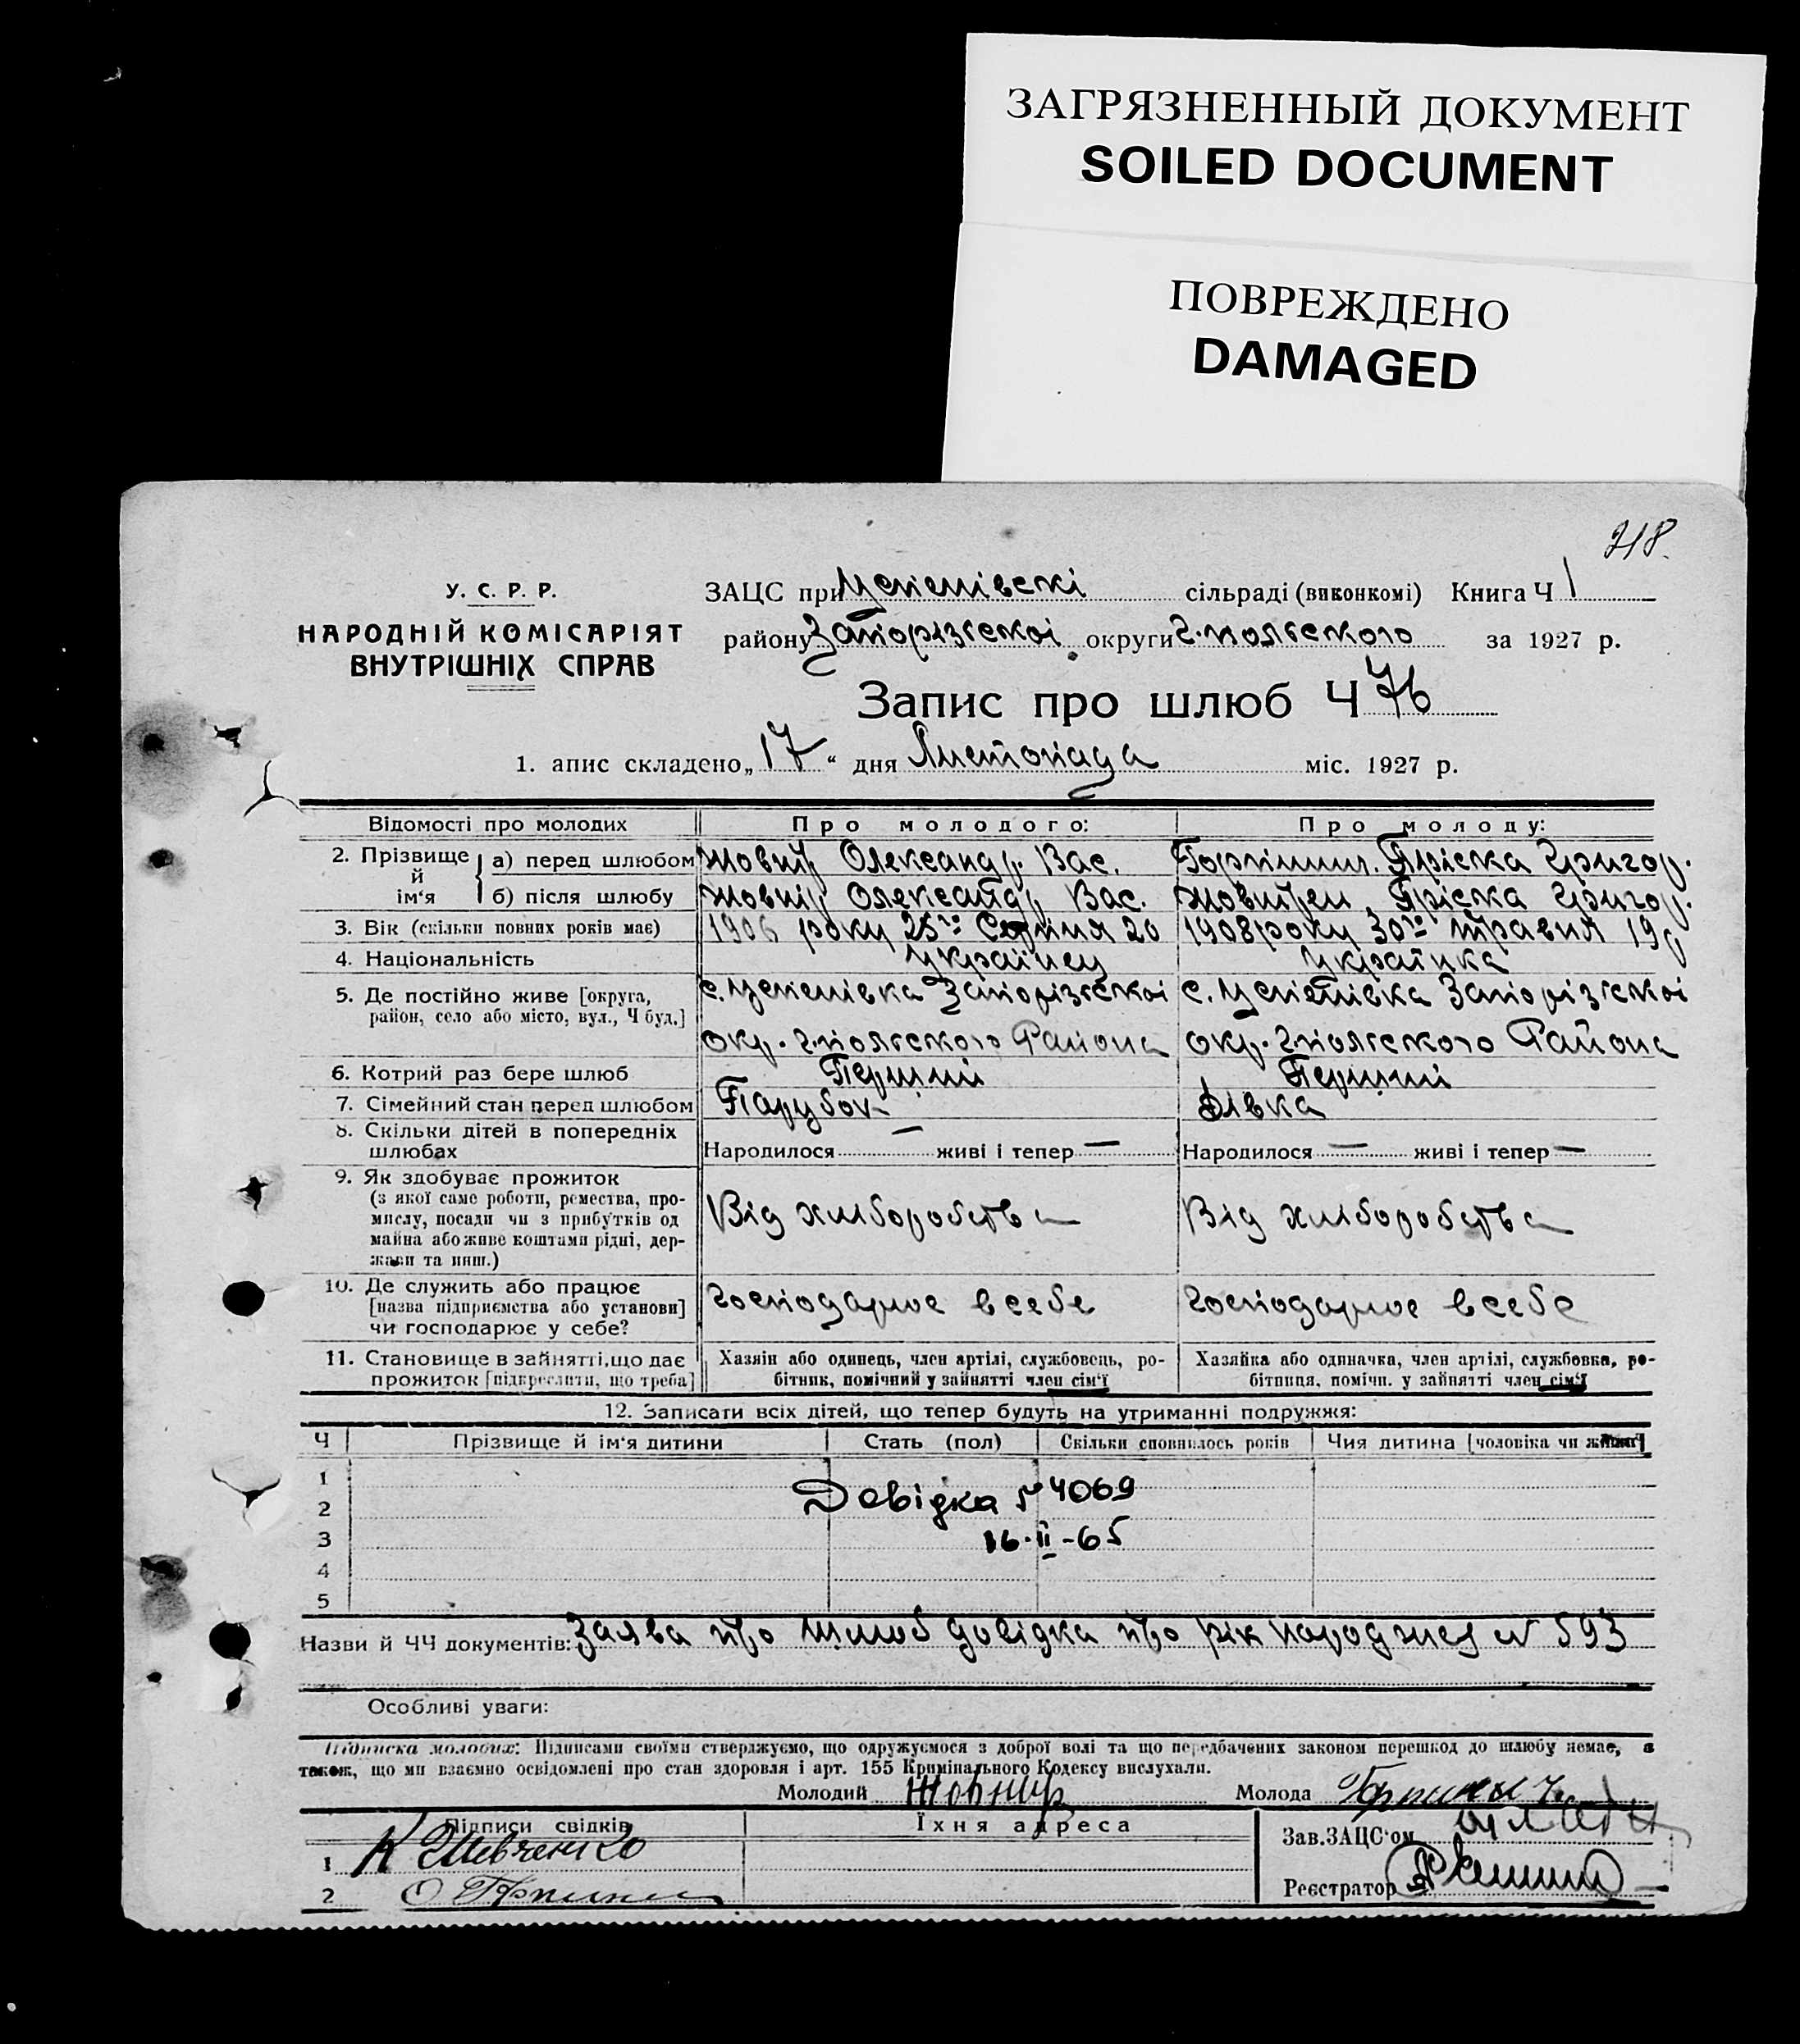 ЗАГРЯЗНЕННЫЙ ДОКУМЕНТ
SOILED DOCUMENT
ПОВРЕЖДЕНО
DAMAGED
218.
У. С. Р. Р.
НАРОДНІЙ КОМІСАРІЯТ
ВНУТРІШНІХ СПРАВ
ЗАЦС при Успенівскі сільраді (виконкомі) Книга Ч 1
району Запорізської округи Г.польского за 1927 р.
Запис про шлюб Ч 76
1. апис складено „17“ дня Листопада міс. 1927 р.
Відомості про молодих Про молодого: Про молоду:
2. Прізвище й ім‘я
а) перед шлюбом Жовнір Олександр. Вас. Пріська Григор.
б) після шлюбу Жовнір Олександр Вас. Пріска Григор.
3. Вік (скільки повних років має) 1906 року 25го Серпня 20 1908 року 30го травня 19
4. Національність українец українка
5. Де постійно живе [округа, район, село або місто, вул., Ч буд.] с. Успенівка Запорізської окр. Г.польского Района с. Успенівка Запорізської окр. Г.польского Района
6. Котрий раз бере шлюб Перший Перший
7. Сімейний стан перед шлюбом Парубок Дівка
8. Скільки дітей в попередніх шлюбах Народилося — живі і тепер — Народилося — живі і тепер —
9. Як здобуває прожиток
(з якої саме роботи, ремества, про-
мислу, посади чи з прибутків од
майна або живе коштами рідні, дер-
жави та инш.)
Від хліборобства Від хліборобства
10. Де служить або працює
[назва підприємства або установи]
чи господарює у себе?
Господарює в себе Господарює в себе
11. Становище в зайнятті, що дає
прожиток [підкреслити, що треба]
Хазяїн або одинець, член артілі, службовець, ро-
бітник, помічний у зайнятті член сім‘ї
Хазяйка або одиначка, член артілі, службовка, ро-
бітниця, помічн. у зайнятті член сім‘ї
12. Записати всіх дітей, що тепер будуть на утриманні подружжя:
Ч Прізвище й ім‘я дитини Стать (пол) Скільки сповнилось років Чия дитина [чоловіка чи жінки]
1
2
3
4
5
Довідка № 4069
16·II-65
Назви й ЧЧ документів: Заява про шлюб довідка про рік народжен N 593
Особливі уваги:
Підписка молодих: Підписами своїми стверджуємо, що одружуємося з доброї волі та що передбачених законом перешкод до шлюбу немає, а
також, що ми взаємно освідомлені про стан здоровля і арт. 155 Кримінального Кодексу вислухали.
Молодий Жовнир Молода
Підписи свідків Їхня адреса
1 К Шевченко
2 О
Зав.ЗАЦС‘ом
Реєстратор